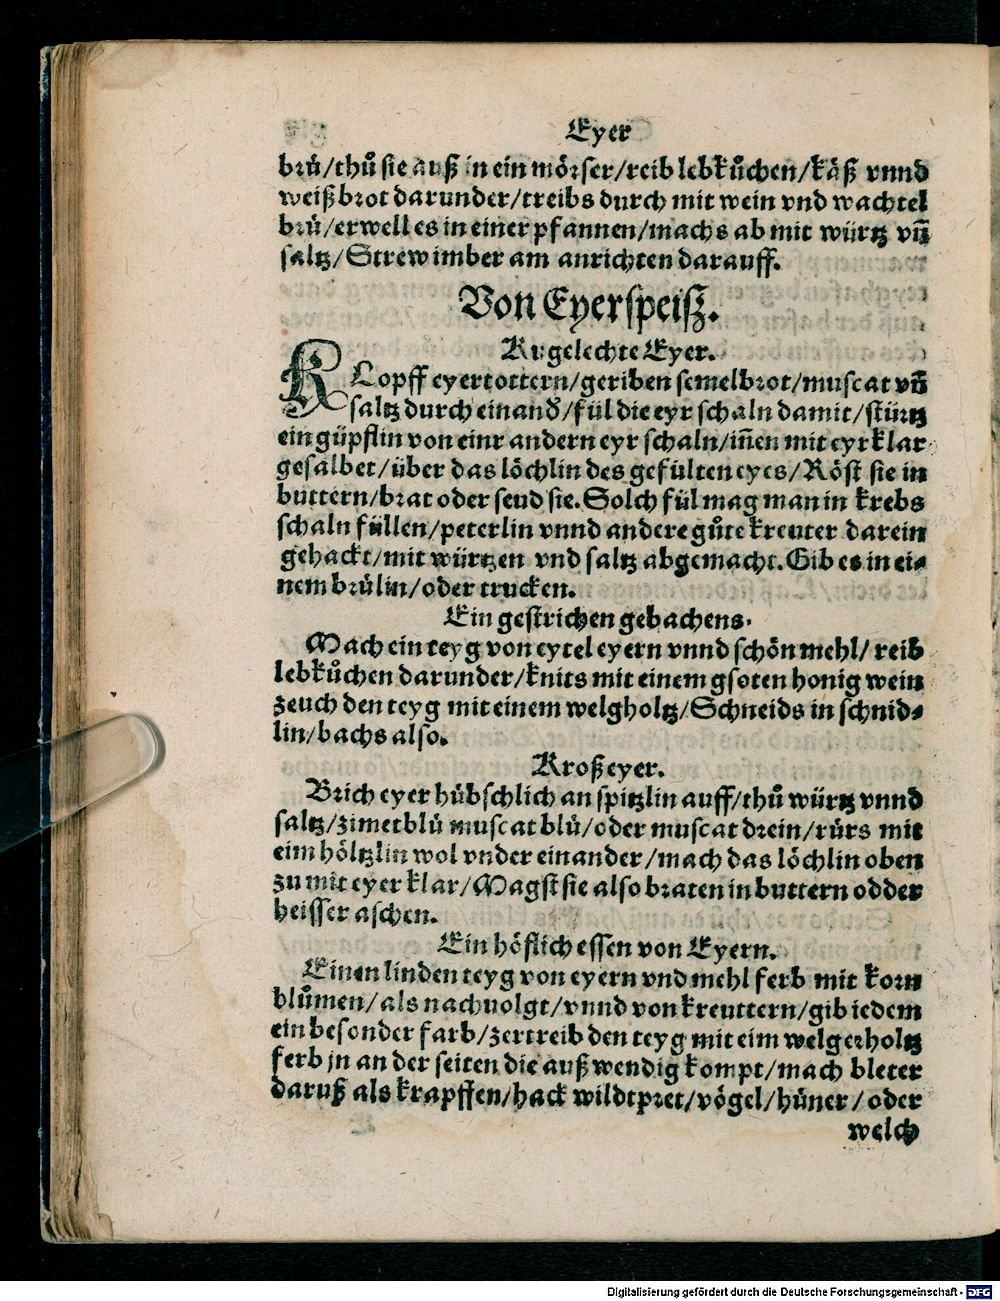 Eyer
brů/thů sie auß in ein mörser/reib lebkůchen/käß vnnd
weißbrot darunder/treibs durch mit wein vnd wachtel
brů/erwell es in einer pfannen/machs ab mit würtz vñ
saltz/Strew imber am anrichten darauff.
Von Eyerspeiß.
Kugelechte Eyer.
KLopff eyertottern/geriben semelbrot/muscat vñ
saltz durch einand/fül die eyr schaln damit/stürtz
ein güpflin von einr andern eyr schaln/iñen mit eyrklar
gesalbet/über das löchlin des gefülten eyes/Röst sie in
buttern/brat oder seud sie. Solch fül mag man in krebs
schaln füllen/peterlin vnnd andere gůte kreuter darein
gehackt/mit würtzen vnd saltz abgemacht. Gib es in ei⸗
nem brůlin/oder trucken.
Ein gestrichen gebachens.
Mach ein teyg von eytel eyern vnnd schön mehl/reib
lebkůchen darunder/knits mit einem gsoten honig wein
zeuch den teyg mit einem welgholtz/Schneids in schnid⸗
lin/bachs also.
Kroßeyer.
Brich eyer hübschlich an spitzlin auff/thů würtz vnnd
saltz/zimetblů muscatblů/oder muscat drein/rürs mit
eim höltzlin wol vnder einander/mach das löchlin oben
zu mit eyer klar/Magst sie also braten in buttern odder
heisser aschen.
Ein höflich essen von Eyern.
Einen linden teyg von eyern vnd mehl ferb mit korn
blůmen/als nachuolgt/vnnd von kreuttern/gib iedem
ein besonder farb/zertreib den teyg mit eim welgerholtz
ferb jn an der seiten die außwendig kompt/mach bleter
daruß als krapffen/hack wildtpret/vögel/hüner/oder
welch
Digitalisierung gefördert durch die Deutsche Forschungsgemeinschaft - DFG